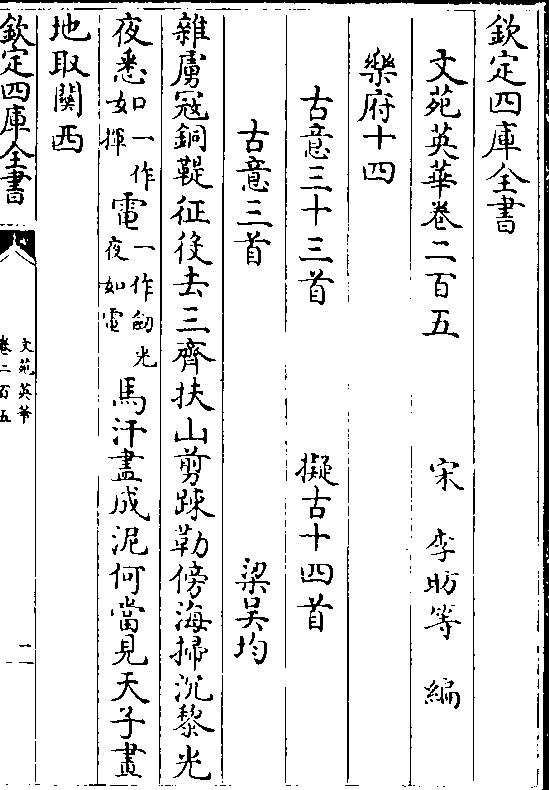 欽定四庫全書
文苑英華卷二百五　宋　李昉等　編
樂府十四
古意三十三首　擬古十四首
古意三首　梁吳均
雜虜冦銅鞮征役去三齊扶山剪踈勒傍海掃沉黎光
夜悉如一作如揮電一作劒光夜如電馬汗盡成泥何當見天子畫
地取關西
欽定四庫全書
文苑英華
卷二百五
二